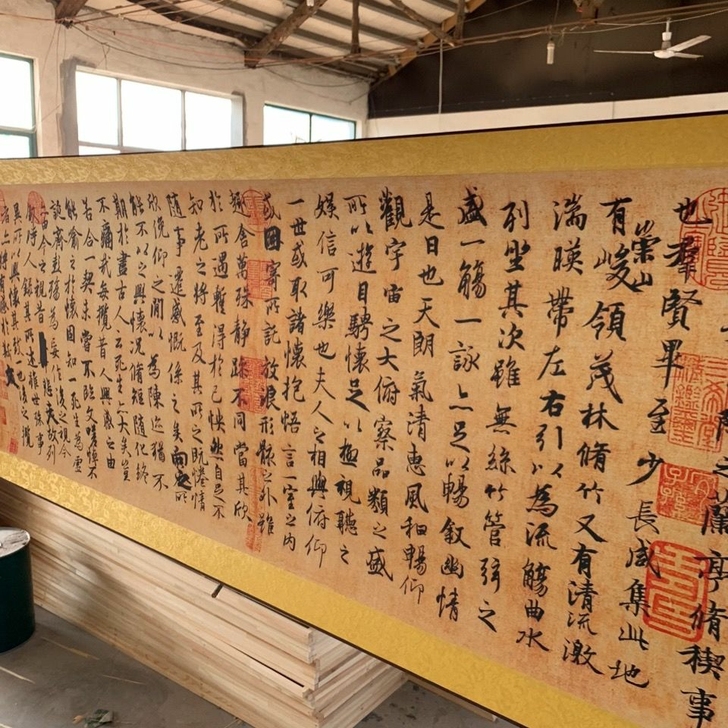 之蘭亭脩稧事
也羣賢畢至少長咸集此地
有崇山峻領茂林脩竹又有清流激
湍暎帶左右引以為流觴曲水
列坐其次雖無絲竹管弦之
盛一觴一詠亦足以暢敘幽情
是日也天朗氣清惠風和暢仰
觀宇宙之大俯察品類之盛
所以遊目騁懷足以極視聽之
娛信可樂也夫人之相與俯仰
一世或取諸懷抱悟言一室之內
或因寄所託放浪形骸之外雖
趣舍萬殊靜躁不同當其欣
於所遇暫得於己怏然自足不
知老之將至及其所之既惓情
隨事遷感慨係之矣向之所
欣俛仰之間以為陳迹猶不
能不以之興懷況脩短隨化終
期於盡古人云死生亦大矣豈
不痛哉每攬昔人興感之由
若合一契未嘗不臨文嗟悼不
能喻之於懷固知一死生為虛
誕齊彭殤為妄作後之視今
亦由今之視昔悲夫故列
敘時人錄其所述雖世殊事
異所以興懷其致一也後之攬
者亦將有感於斯文